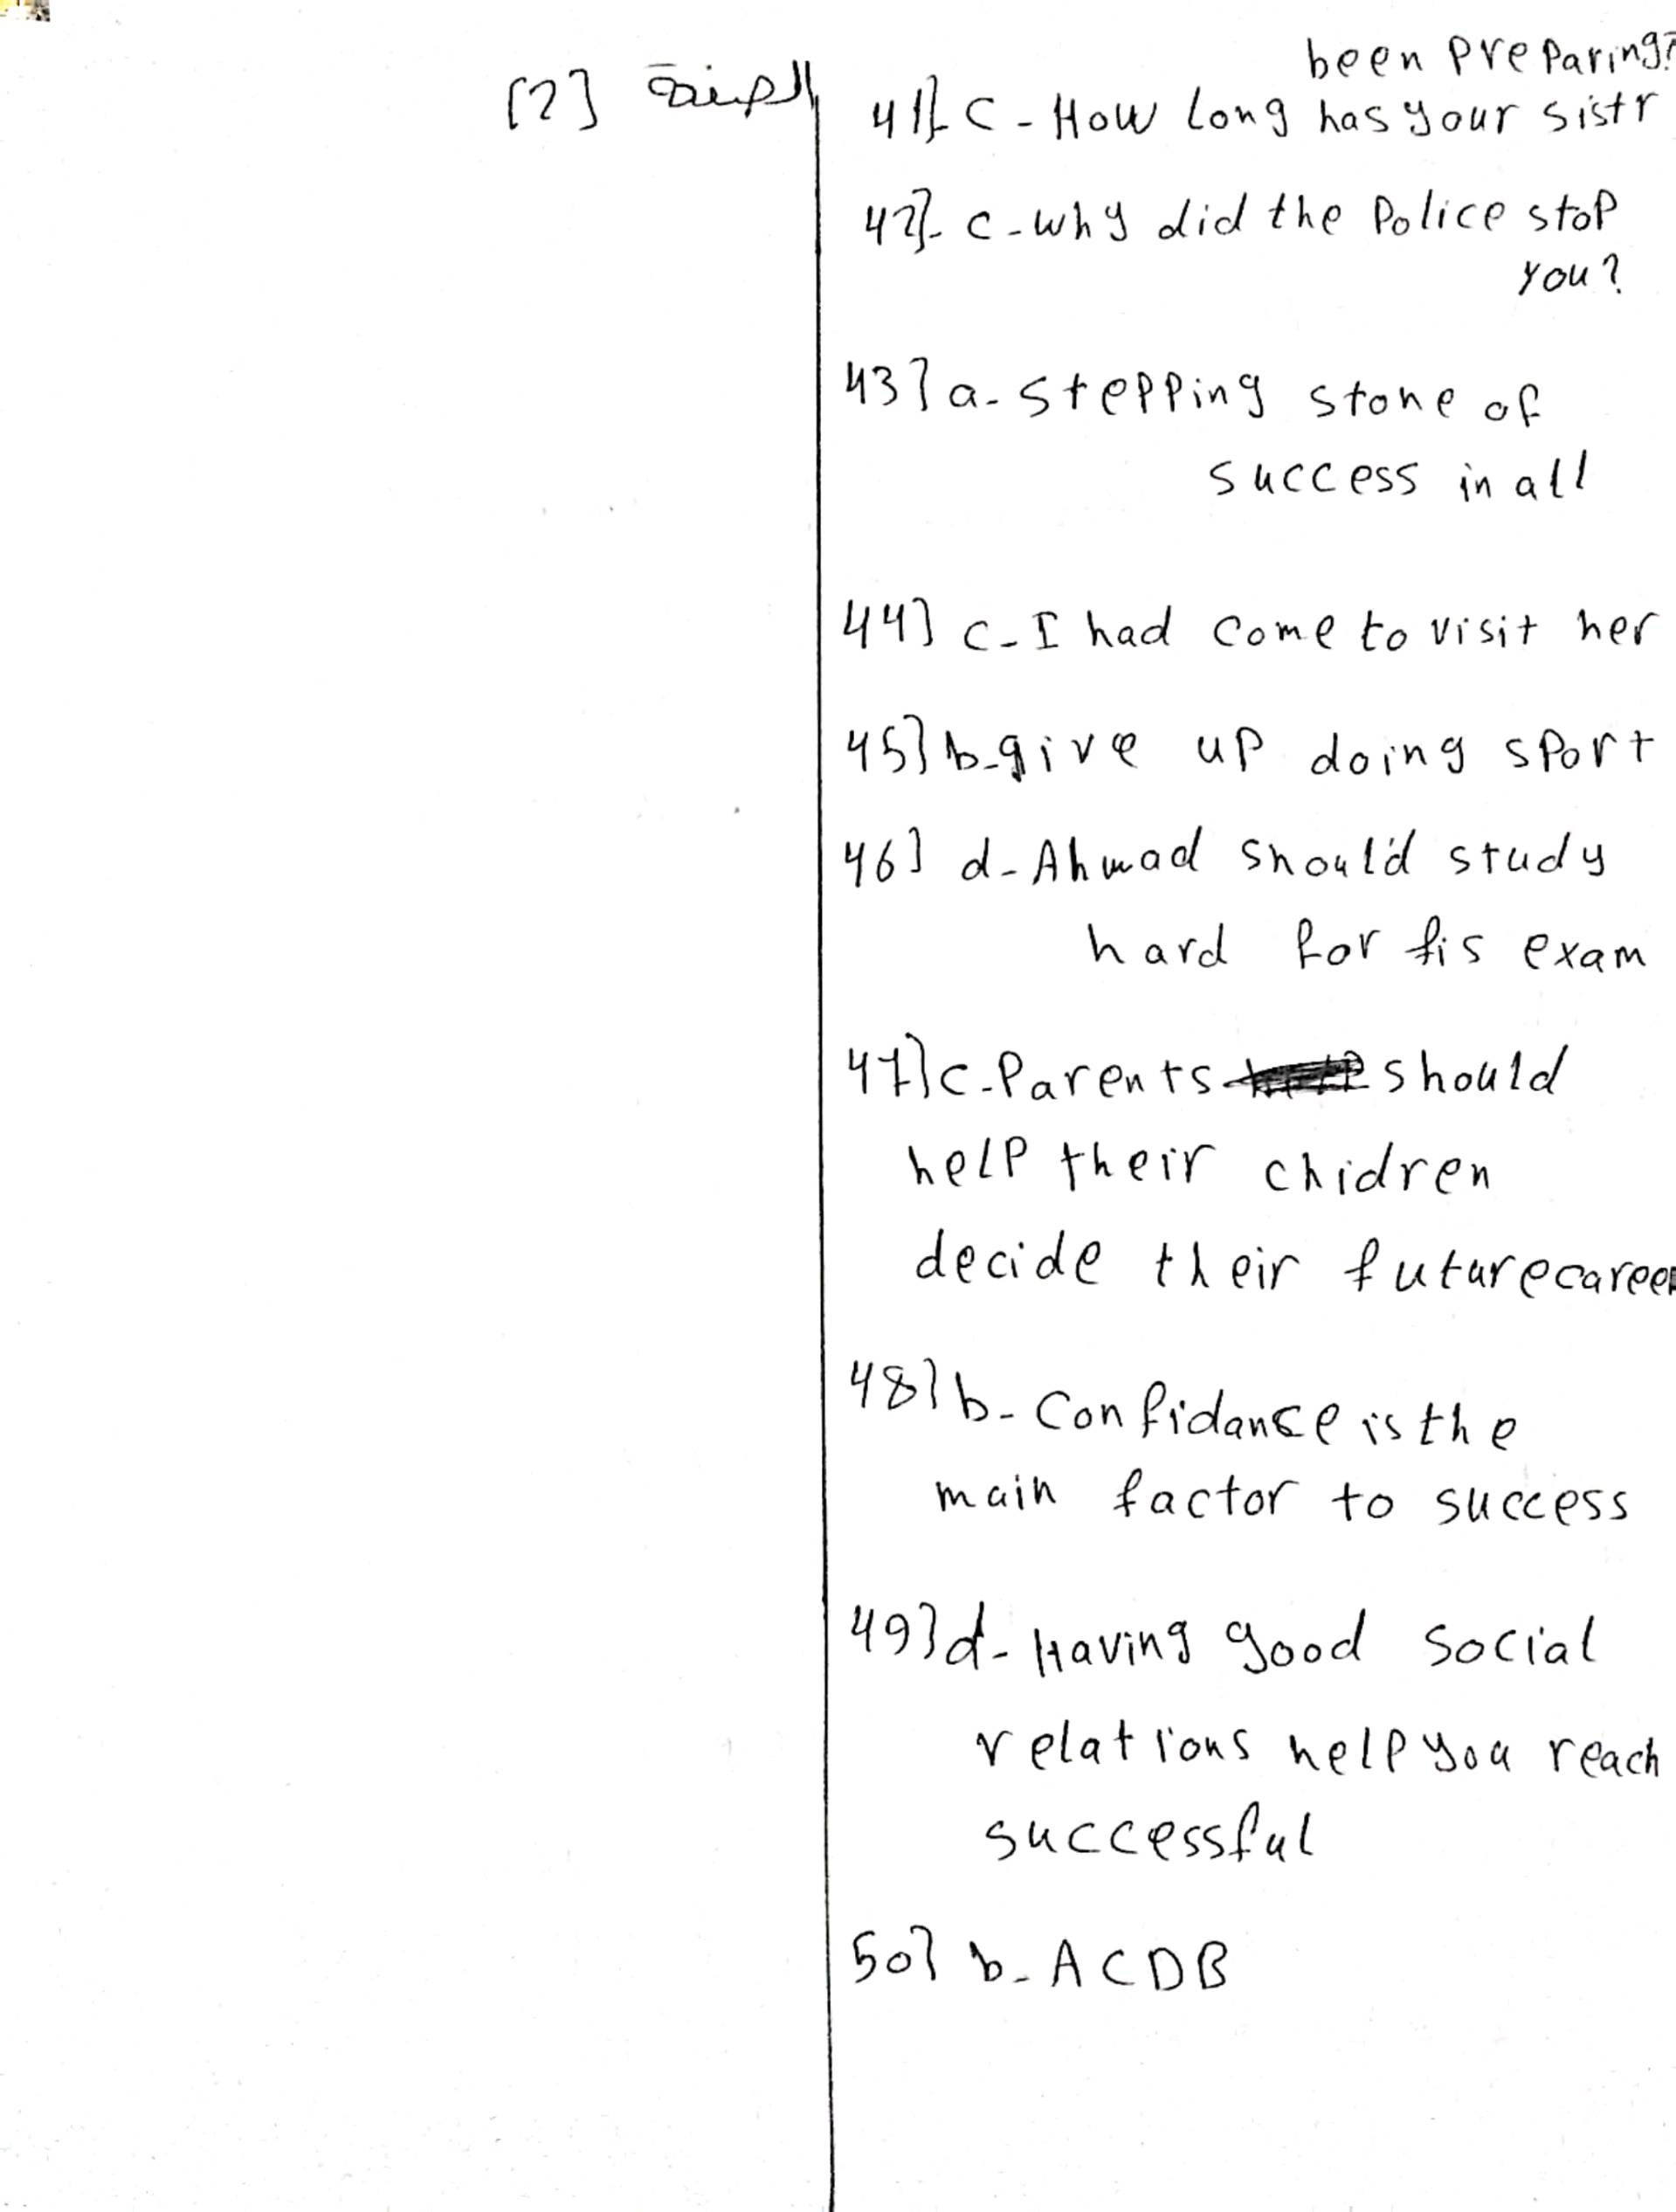 been preparing?
41]- c - How long has your sistr
42]- c - why did the police stop
you?
43] a - stepping stone of
success in all
44] c - I had come to visit her
45] b - give up doing sport
46] d - Ahmad should study
hard for fis exam
47] c - Parents should
help their chidren
decide their future career
48] b - Confidanse is the
main factor to success
49] d - Having good social
relations help you reach
successful
50] b - ACDB
[2]